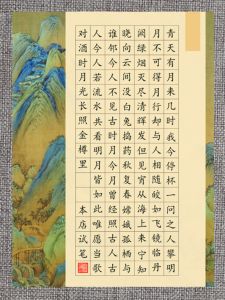 青天有月来几时我今停杯一问之人攀明
月不可得月行却与人相随皎如飞镜临丹
阙绿烟灭尽清辉发但见宵从海上来宁知
晓向云间没白兔捣药秋复春嫦娥孤栖与
谁邻今人不见古时月今月曾经照古人古
人今人若流水共看明月皆如此唯愿当歌
对酒时月光长照金樽里 本店试笔